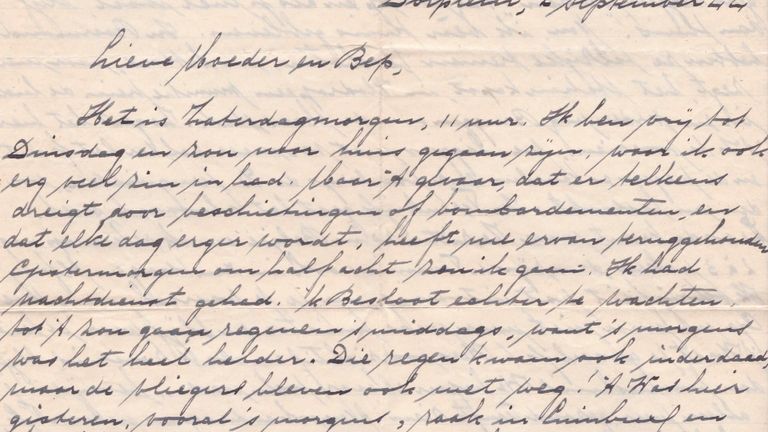 september 44
Lieve Moeder en Bep,
Het is Zaterdagmorgen, 11 uur. Ik ben vrij tot
Dinsdag en zou naar huis gegaan zijn, waar ik ook
erg veel zin in had. Maar 't gevaar, dat er telkens
dreigt door beschietingen of bombardementen, en
dat elke dag erger wordt, heeft me ervan teruggehouden
Gistermorgen om half acht zou ik gaan. Ik had
nachtdienst gehad. 'k Besloot echter te wachten,
tot 't zou gaan regenen 's middags, want 's morgens
was het heel helder. Die regen kwam ook inderdaad,
maar de vliegers bleven ook niet weg! 't Was hier
gisteren, vooral 's morgens, raak in en